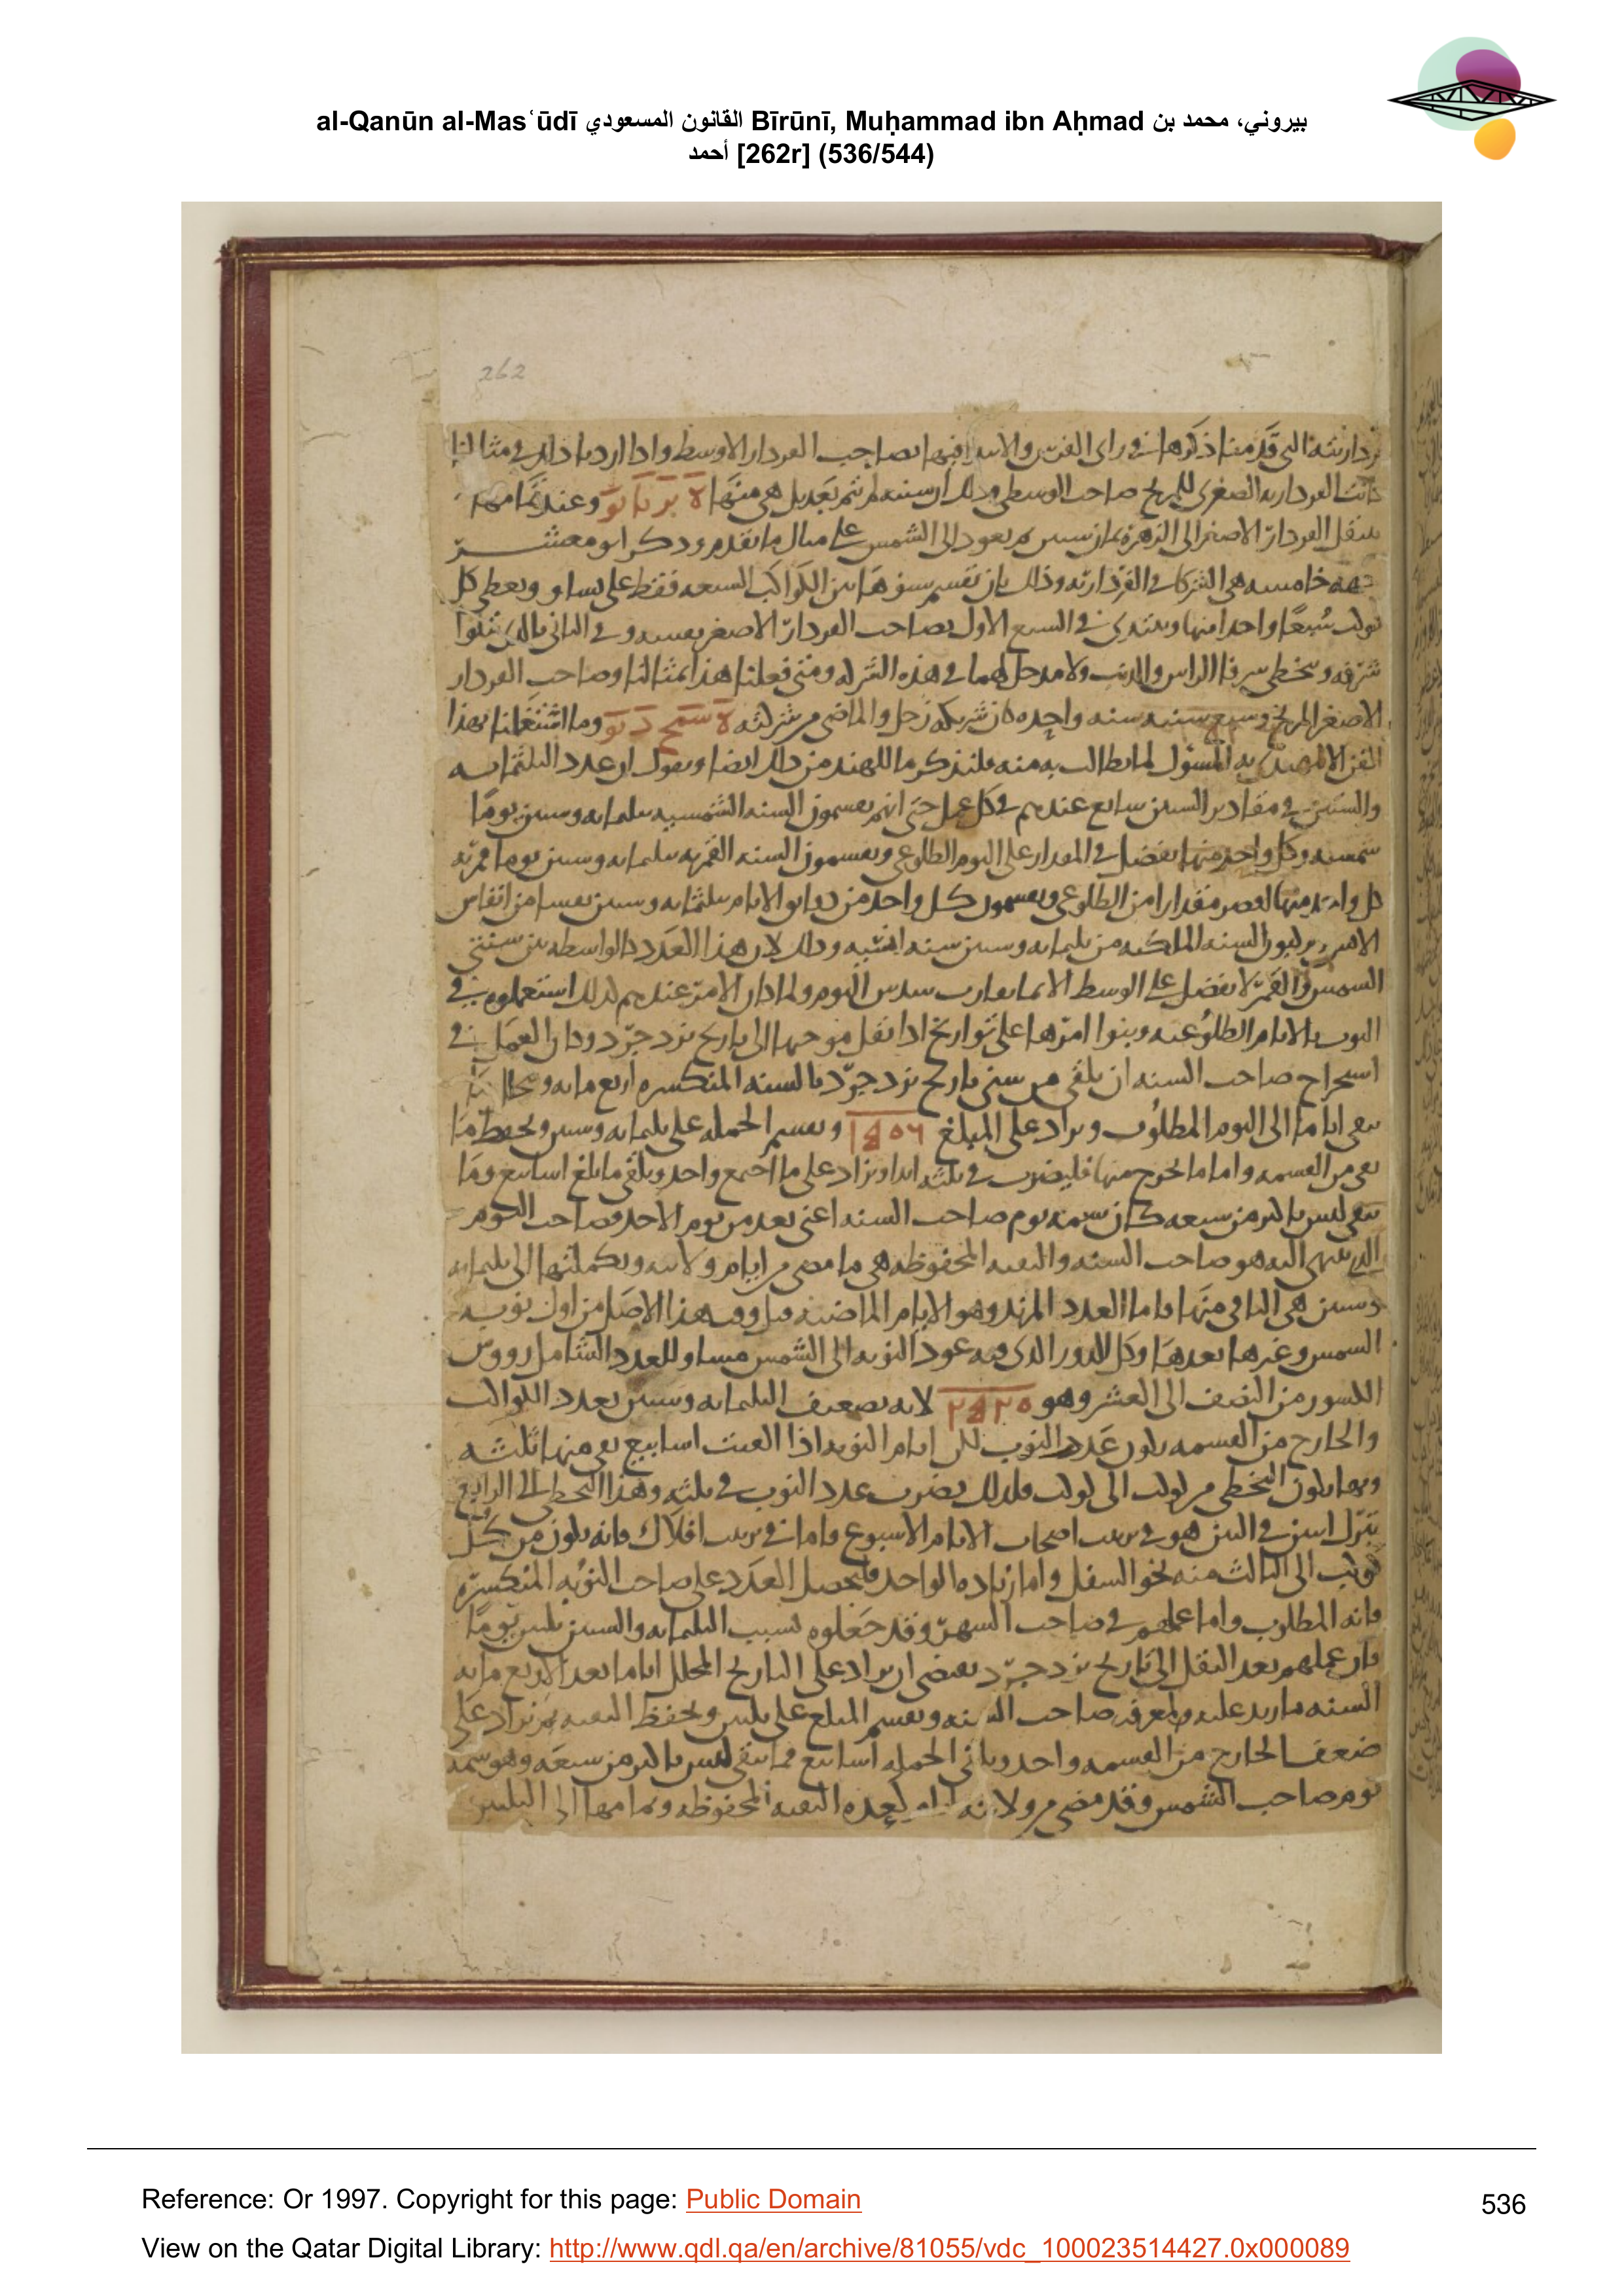 al-Qanūn al-Masʿūdī القانون المسعودي Bīrūnī, Muḥammad ibn Aḥmad بيروني، محمد بن
أحمد [262r] (536/544)
262
التى قدمنا ذكرها فى راى الفرس والابتدا فيها بصاحب الفردار الاوسط واذا اردنا ذلك فى مثالنا
كانت الفرداريه الصغرى للمريخ صاحب الوسطى وعند تمامها
ينتقل الفردار الاصغر الى الزهره ثم يعود الى الشمس على مثال ما تقدم وذكر ابو معشر
خامسه هى الشركا فى الفرداريه وذلك بان تقسم سنوها بين الكواكب السبعه فقط على تساو ويعطى كل
كوكب سبعا واحدا منها ويبتدى فى السبع الاول بصاحب الفردار الاصغر بنفسه وفى الثانى بالذى يتلوا
شرفه ويتخطى شرفا الراس والذنب ولا مدخل لهما فى هذه الشركه ومتى فعلنا هذا بمثالنا وصاحب الفردار
الاصغر المريخ وسبع سنيه سنه واحده كان شريكه زحل والماضى من شركته وما اشتغلنا بهذا
الفن فلنذكر ما للهند من ذلك ايضا ونقول ان عدد الثلثمايه
والستين فى مقادير السنين شايع عندهم فى كل عمل حتى انهم يقسمون السنه الشمسيه بثلثمايه وستين يوما
شمسيه وكل واحد منها يفضل فى المقدار على اليوم الطلوعى ويقسمون السنه القمريه بثلثمايه وستين يوما قمريه
كل واحد منها انقص مقدارا من الطلوعى ويقسمون كل واحد من دقايق الايام بثلثمايه وستين نفسا من انفاس
السنه الملكيه من ثلثمايه وستين سنه انسيه وذلك لان هذا العدد كالواسطه بين سنتى
الشمس والقمر لا يفضل على الوسط الا بما يقارب سدس اليوم ولما كان الامر عندهم كذلك استعملوه فى
النوب بالايام الطلوعيه وبنوا امرها على تواريخ اذا نقل موجبها الى تاريخ يزدجرد كان العمل فى
استخراج صاحب السنه ان يلقى من سنى تاريخ يزدجرد بالسنه المنكسره اربع مايه ويحل ما
يبقى اياما الى اليوم المطلوب ويزاد على المبلغ ويقسم الجمله على ثلثمايه وستين ويحفظ ما
بقى من القسمه واما ما يخرج منها فليضرب فى ثلثه ابدا ويزاد على ما اجتمع واحد ويلقى ما بلغ اسابيع وما
يبقى ليس باكثر من سبعه كان سمه يوم صاحب السنه اعنى بعده من يوم الاحد وصاحب اليوم
الذى ينتهى اليه هو صاحب السنه والبقيه المحفوظه هى ما مضى من ايام ولايته وتكملتها الى ثلثمايه
وستين هى الباقى منها فاما العدد المزيد وهو الايام الماضيه قبل وقت هذا الاصل من اول نوبه
الشمس وغيرها بعدها وكل الدور الذى فيه عود النوبه الى الشمس مساو للعدد الشامل رووس
الكسور من النصف الى العشر وهو ٢٥٢٠ لانه تضعيف الثلثمايه وستين بعدد الكواكب
والخارج من القسمه يكون عدد النوب لكن ايام النوبه اذا القيت اسابيع بقى منها ثلثه
وبها يكون التخطى من كوكب الى كوكب فلذلك يضرب عدد النوب فى ثلثه وهذا التخطى الى الرابع
بترك اثنين فى البين هو فى ترتيب اصحاب الايام الاسبوع واما فى ترتيب افلاك فانه يكون من كل
كوكب الى الثالث منه نحو السفل واما زياده الواحد فليحصل العدد على صاحب النوبه المنكسره
فانه المطلوب واما عملهم فى صاحب الشهر وقد جعلوه لسبب الثلثمايه والستين ثلثين يوما
فان عملهم بعد النقل الى تاريخ يزدجرد يقتضى ان يزاد على التاريخ المحلل اياما بعد الاربع مايه
السنه ما زيد عليه لمعرفه صاحب السنه ويقسم المبلغ على ثلثين ويحفظ البقيه ثم يزاد على
ضعف الخارج من القسمه واحد ويلقى الجمله اسابيع فما يبقى ليس باكثر من سبعه وهو سمه
يوم صاحب الشمس وقد مضى من ولايته ايام بعده البقيه المحفوظه وتمامها الى الثلثين
Reference: Or 1997. Copyright for this page: Public Domain
536
View on the Qatar Digital Library: http://www.qdl.qa/en/archive/81055/vdc_100023514427.0x000089